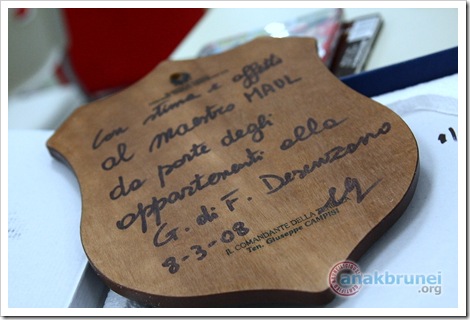 Con stima e affetto
al maestro MADL
da parte degli
appartenenti alla
G. di F. Desenzano
8-3-08
IL COMANDANTE DELLA
Ten. Giuseppe CAMPISI
anakbrunei
.org